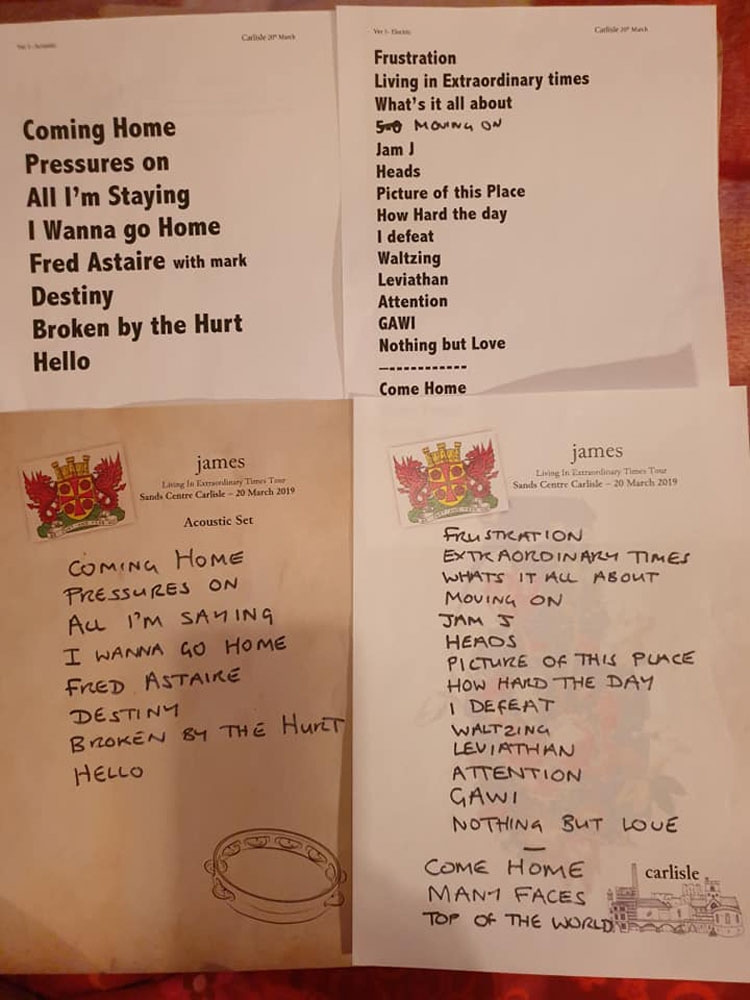 Ver 3 - Acoustic
Carlisle 20th March
Coming Home
Pressures on
All I'm Staying
I Wanna go Home
Fred Astaire with mark
Destiny
Broken by the Hurt
Hello
Ver 3 - Electric
Carlisle 20th March
Frustration
Living in Extraordinary times
What's it all about
5-0 MOVING ON
Jam J
Heads
Picture of this Place
How Hard the day
I defeat
Waltzing
Leviathan
Attention
GAWI
Nothing but Love
------------
Come Home
james
Living In Extraordinary Times Tour
Sands Centre Carlisle – 20 March 2019
Acoustic Set
COMING HOME
PRESSURES ON
ALL I'M SAYING
I WANNA GO HOME
FRED ASTAIRE
DESTINY
BROKEN BY THE HURT
HELLO
james
Living In Extraordinary Times Tour
Sands Centre Carlisle – 20 March 2019
FRUSTRATION
EXTRAORDINARY TIMES
WHATS IT ALL ABOUT
MOVING ON
JAM J
HEADS
PICTURE OF THIS PLACE
HOW HARD THE DAY
I DEFEAT
WALTZING
LEVIATHAN
ATTENTION
GAWI
NOTHING BUT LOVE
—
COME HOME
MANY FACES
TOP OF THE WORLD
carlisle